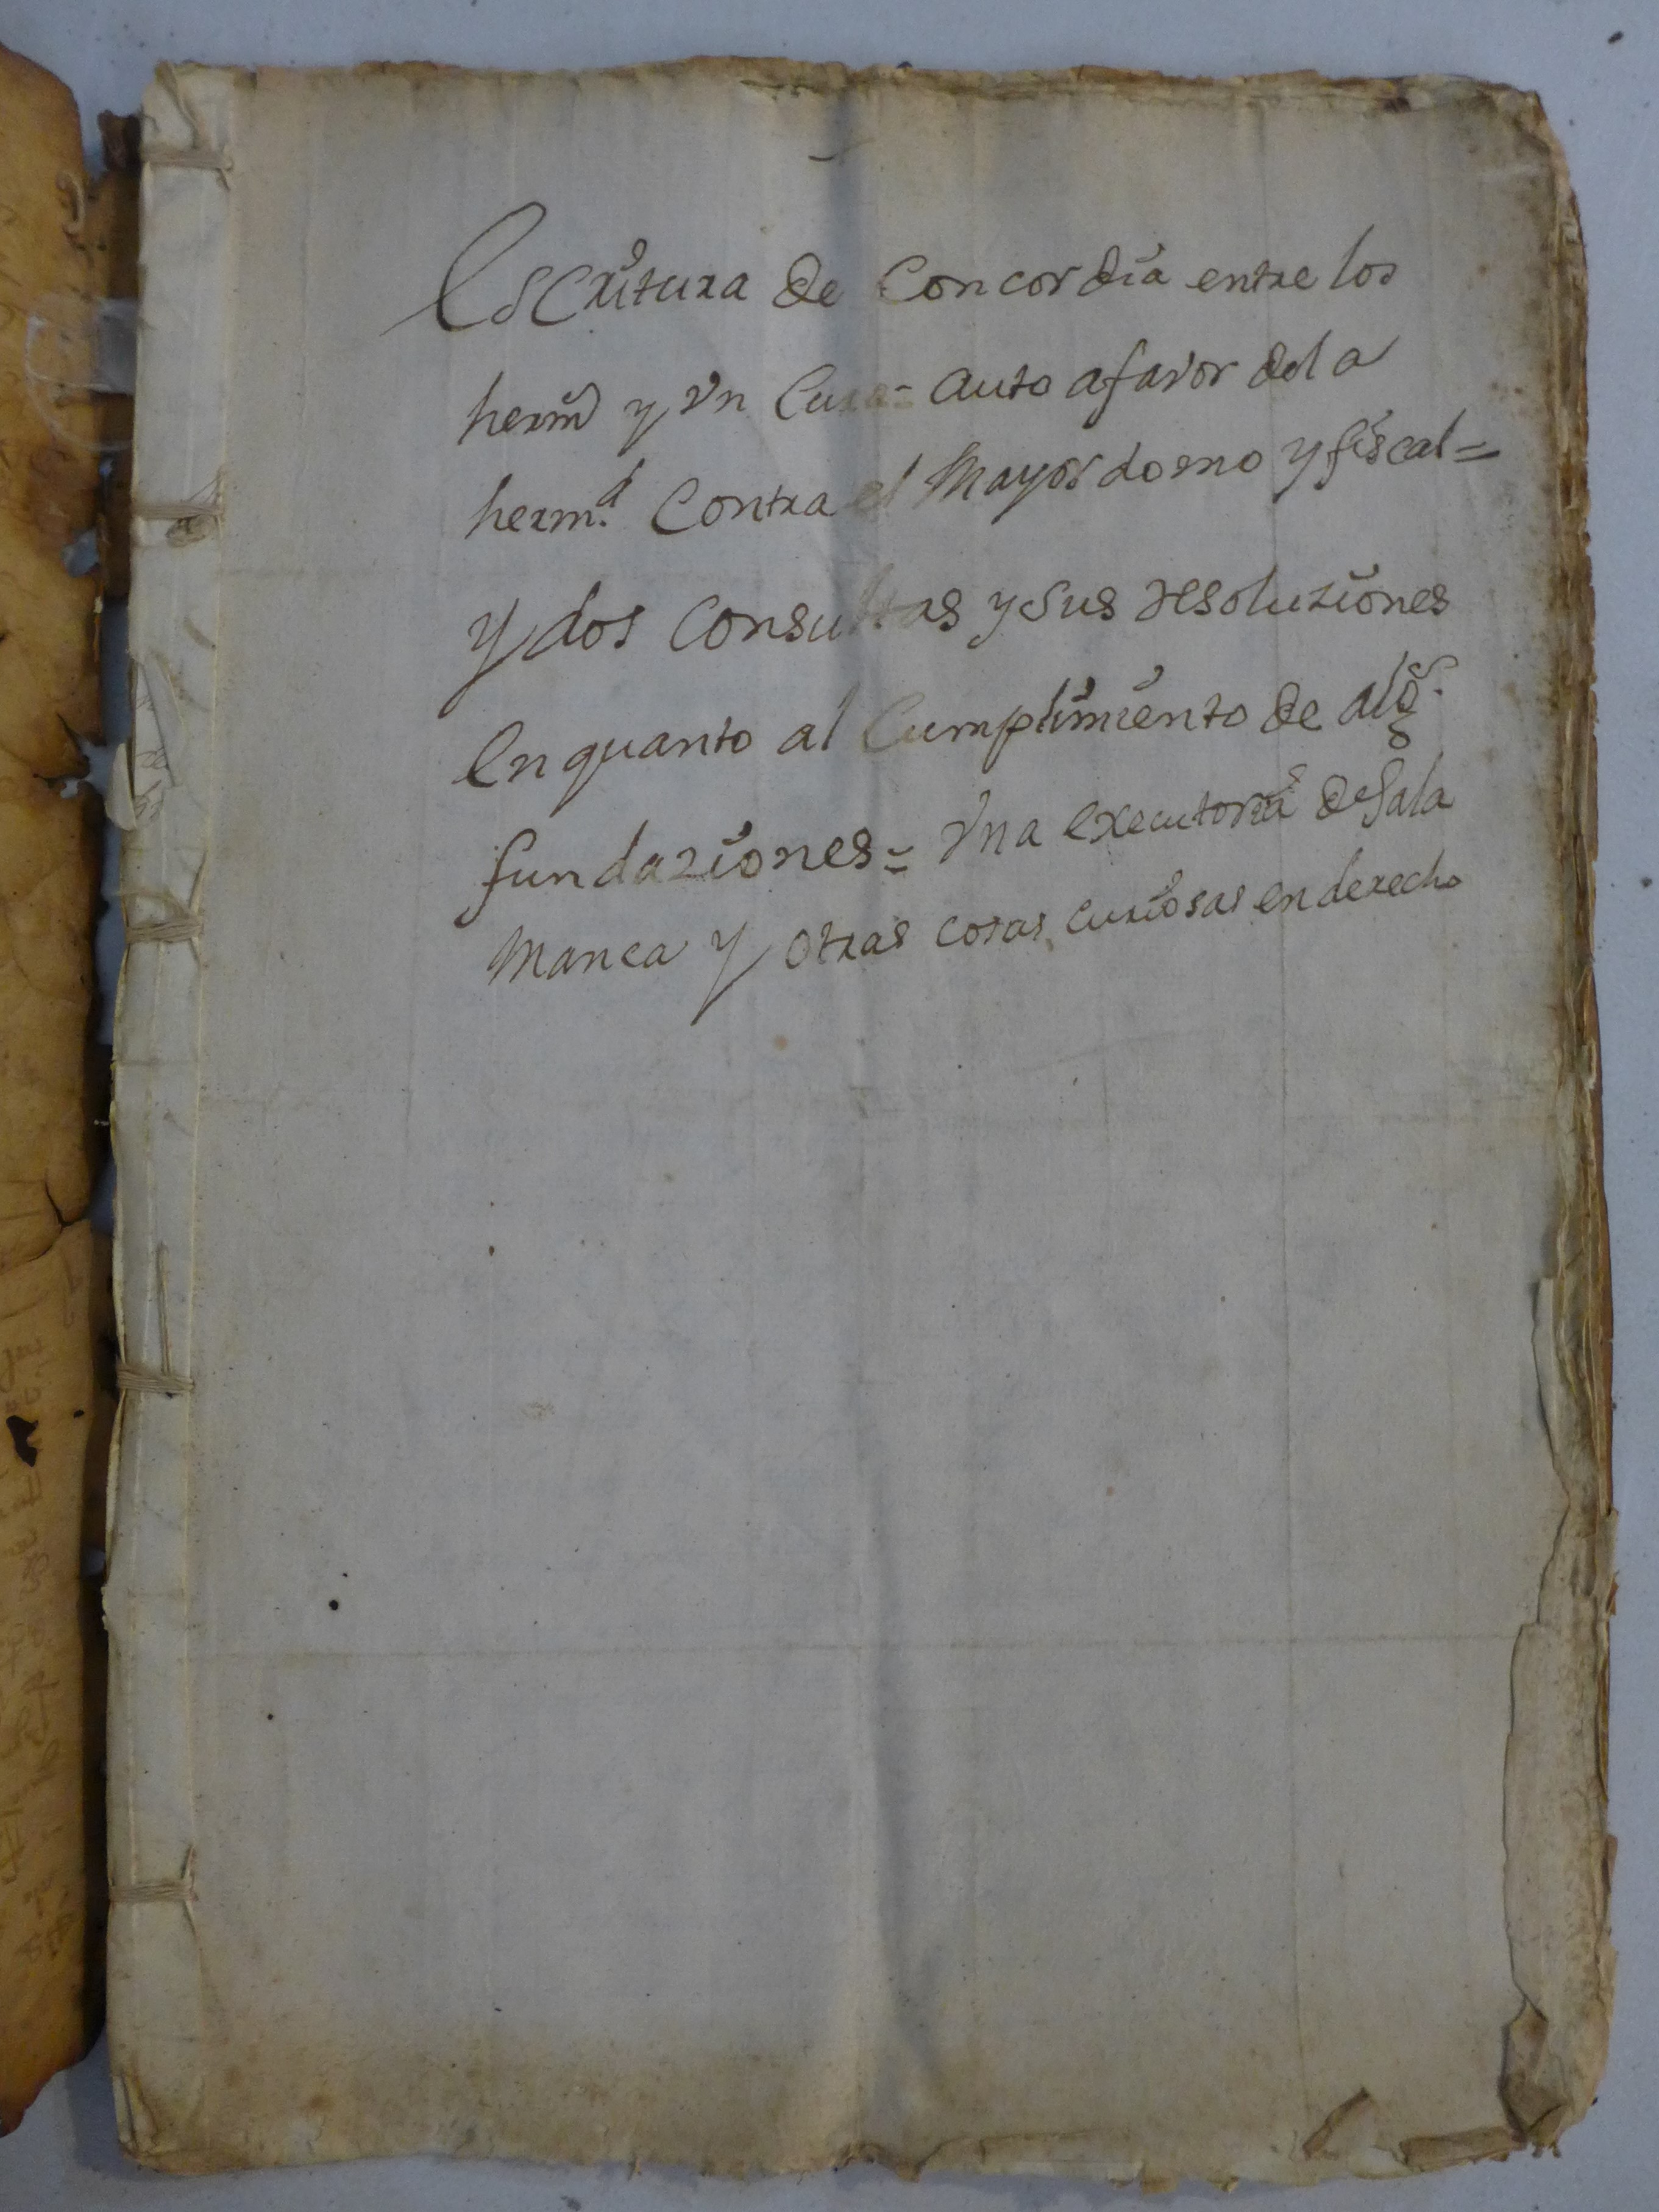 Escritura de Concordia entre los
hermd y vn Cura = auto afavor del a
herm.d Contra el Mayordomo y fiscal =
y dos Consultas y sus resoluziones
En quanto al Cumplimiento de algs.
fundaziones = vna executoria de Sala
manca y otras cosas curiosas en derecho